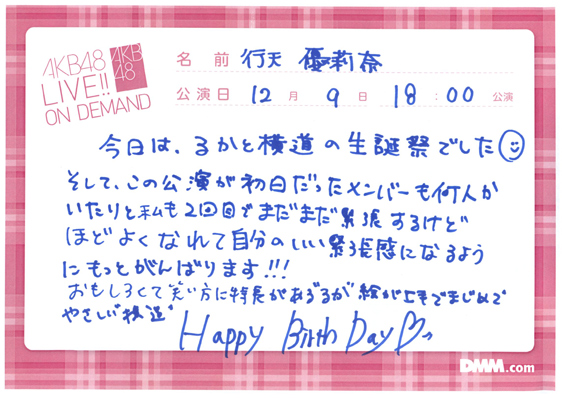 AKB48
LIVE!!
ON DEMAND
AKB
48
名前 行天 優莉奈
公演日 12月 9日 18:00 公演
今日は、るかと横道の生誕祭でした
そして、この公演が初日だったメンバーも何人か
いたりと私も2回目でまだまだ緊張するけど
ほどよくなれて自分のいい緊張感になるよう
にもっとがんばります!!!
おもしろくて笑い方に特長がある"るか" 絵が上手でまじめで
やさしい"横道"
Happy Birth Day
DMM.com